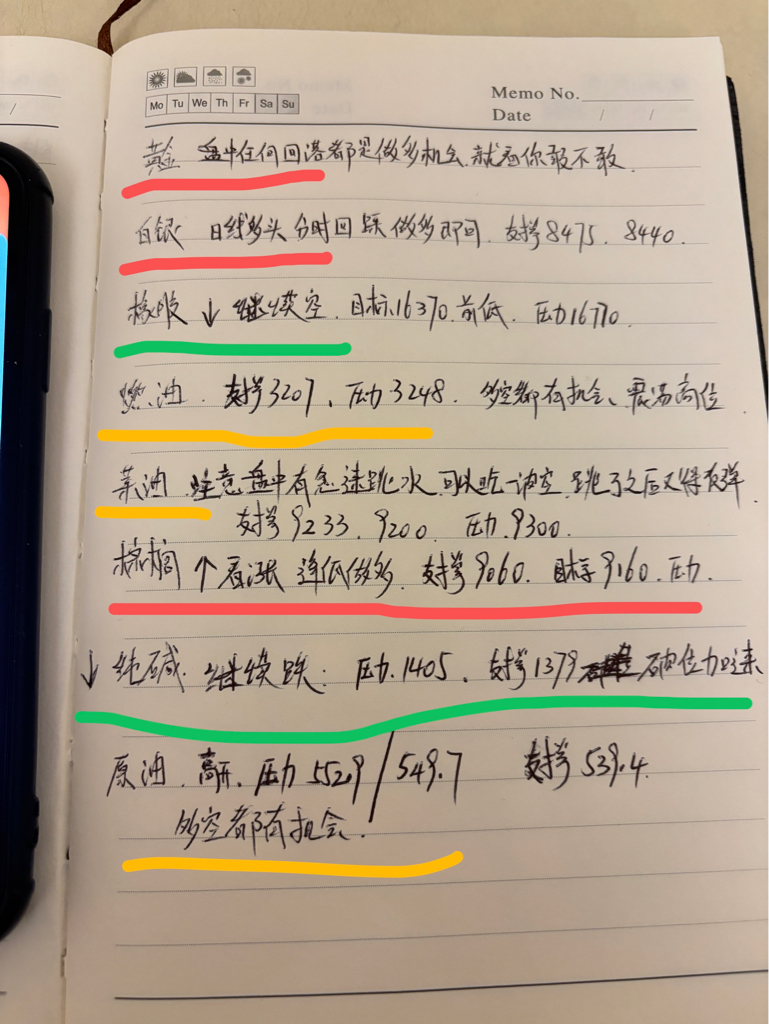 Mo Tu We Th Fr Sa Su
Memo No.
Date / /
黄金 盘中任何回落都是做多机会.就看你敢不敢.
白银 日线多头 分时回踩做多即可. 支撑8475. 8440.
橡胶 ↓ 继续空. 目标16370.前低. 压力16770.
燃油. 支撑3207、压力3248. 多空都有机会、震荡高位
菜油 注意盘中有急速跳水.可以吃一波空.跳了之后又得反弹
支撑9233.9200. 压力.9300.
棕榈 ↑看涨 逢低做多. 支撑9060. 目标9160.压力.
↓纯碱. 继续跌: 压力.1405. 支撑1379 破位加速
原油.高开.压力552.9/549.7 支撑539.4.
多空都有机会.